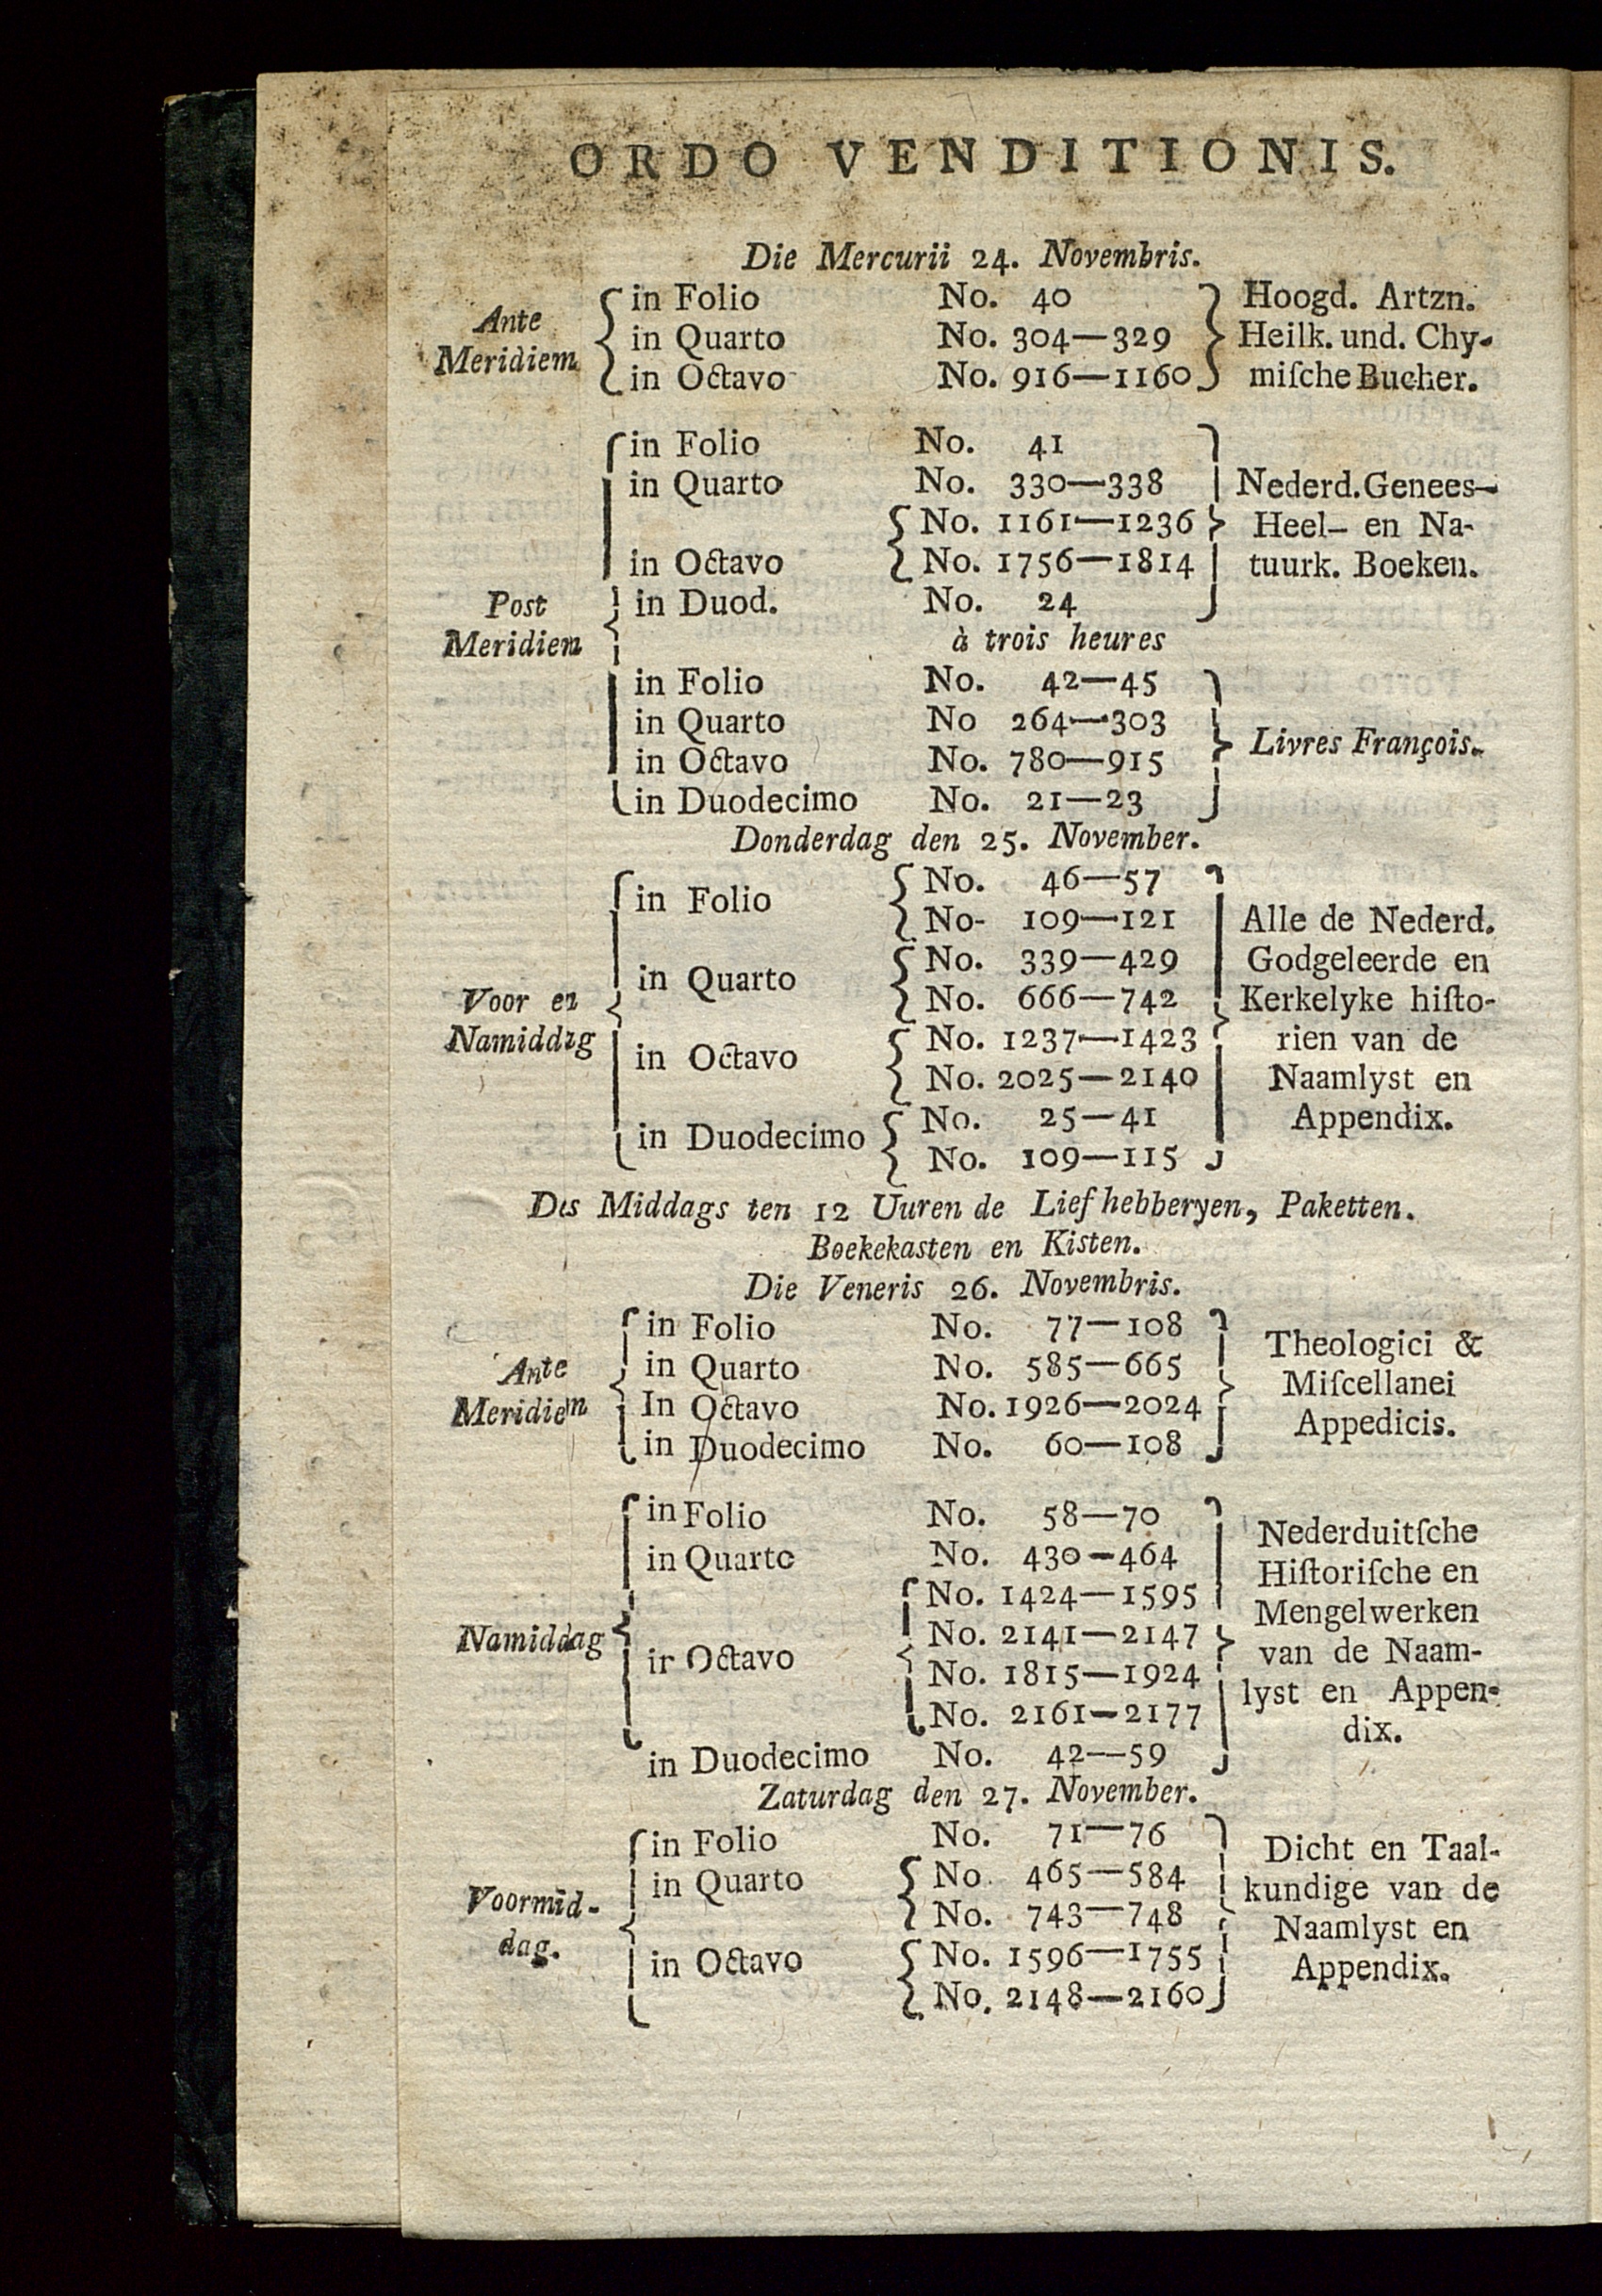 ORDO VENDITIONIS.
Die Mercurii 24. Novembris.
Ante
Meridiem
in Folio No. 40
in Quarto No. 304—329
in Octavo No. 916—1160
Hoogd. Artzn.
Heilk. und. Chy-
miſche Bucher.
Post
Meridiem
in Folio No. 41
in Quarto No. 330—338
No. 1161—1236
in Octavo No. 1756—1814
in Duod. No. 24
Nederd. Genees-
Heel- en Na-
tuurk. Boeken.
à trois heures
in Folio No. 42—45
in Quarto No 264—303
in Octavo No. 780—915
in Duodecimo No. 21—23
Livres François.
Donderdag den 25. November.
Voor en
Namiddag
in Folio No. 46—57
No- 109—121
in Quarto No. 339—429
No. 666—742
in Octavo No. 1237—1423
No. 2025—2140
in Duodecimo No. 25—41
No. 109—115
Alle de Nederd.
Godgeleerde en
Kerkelyke hiſto-
rien van de
Naamlyst en
Appendix.
Des Middags ten 12 Uuren de Liefhebberyen, Paketten.
Boekekasten en Kisten.
Die Veneris 26. Novembris.
Ante
Meridiem
in Folio No. 77—108
in Quarto No. 585—665
In Octavo No. 1926—2024
in Duodecimo No. 60—108
Theologici &
Miſcellanei
Appedicis.
Namiddag
in Folio No. 58—70
in Quarto No. 430—464
No. 1424—1595
No. 2141—2147
ir Octavo
No. 1815—1924
No. 2161—2177
in Duodecimo No. 42—59
Nederduitſche
Hiſtoriſche en
Mengelwerken
van de Naam-
lyst en Appen-
dix.
Zaturdag den 27. November.
Voormid-
dag.
in Folio No. 71—76
in Quarto No. 465—584
No. 743—748
in Octavo No. 1596—1755
No. 2148—2160
Dicht en Taal-
kundige van de
Naamlyst en
Appendix.